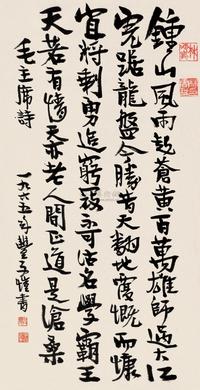 鍾山風雨起蒼黃百萬雄師過大江
虎踞龍盤今勝昔天翻地覆慨而慷
宜將剩勇追窮寇不可沽名學霸王
天若有情天亦老人間正道是滄桑
毛主席詩
一九六五年豐子愷書